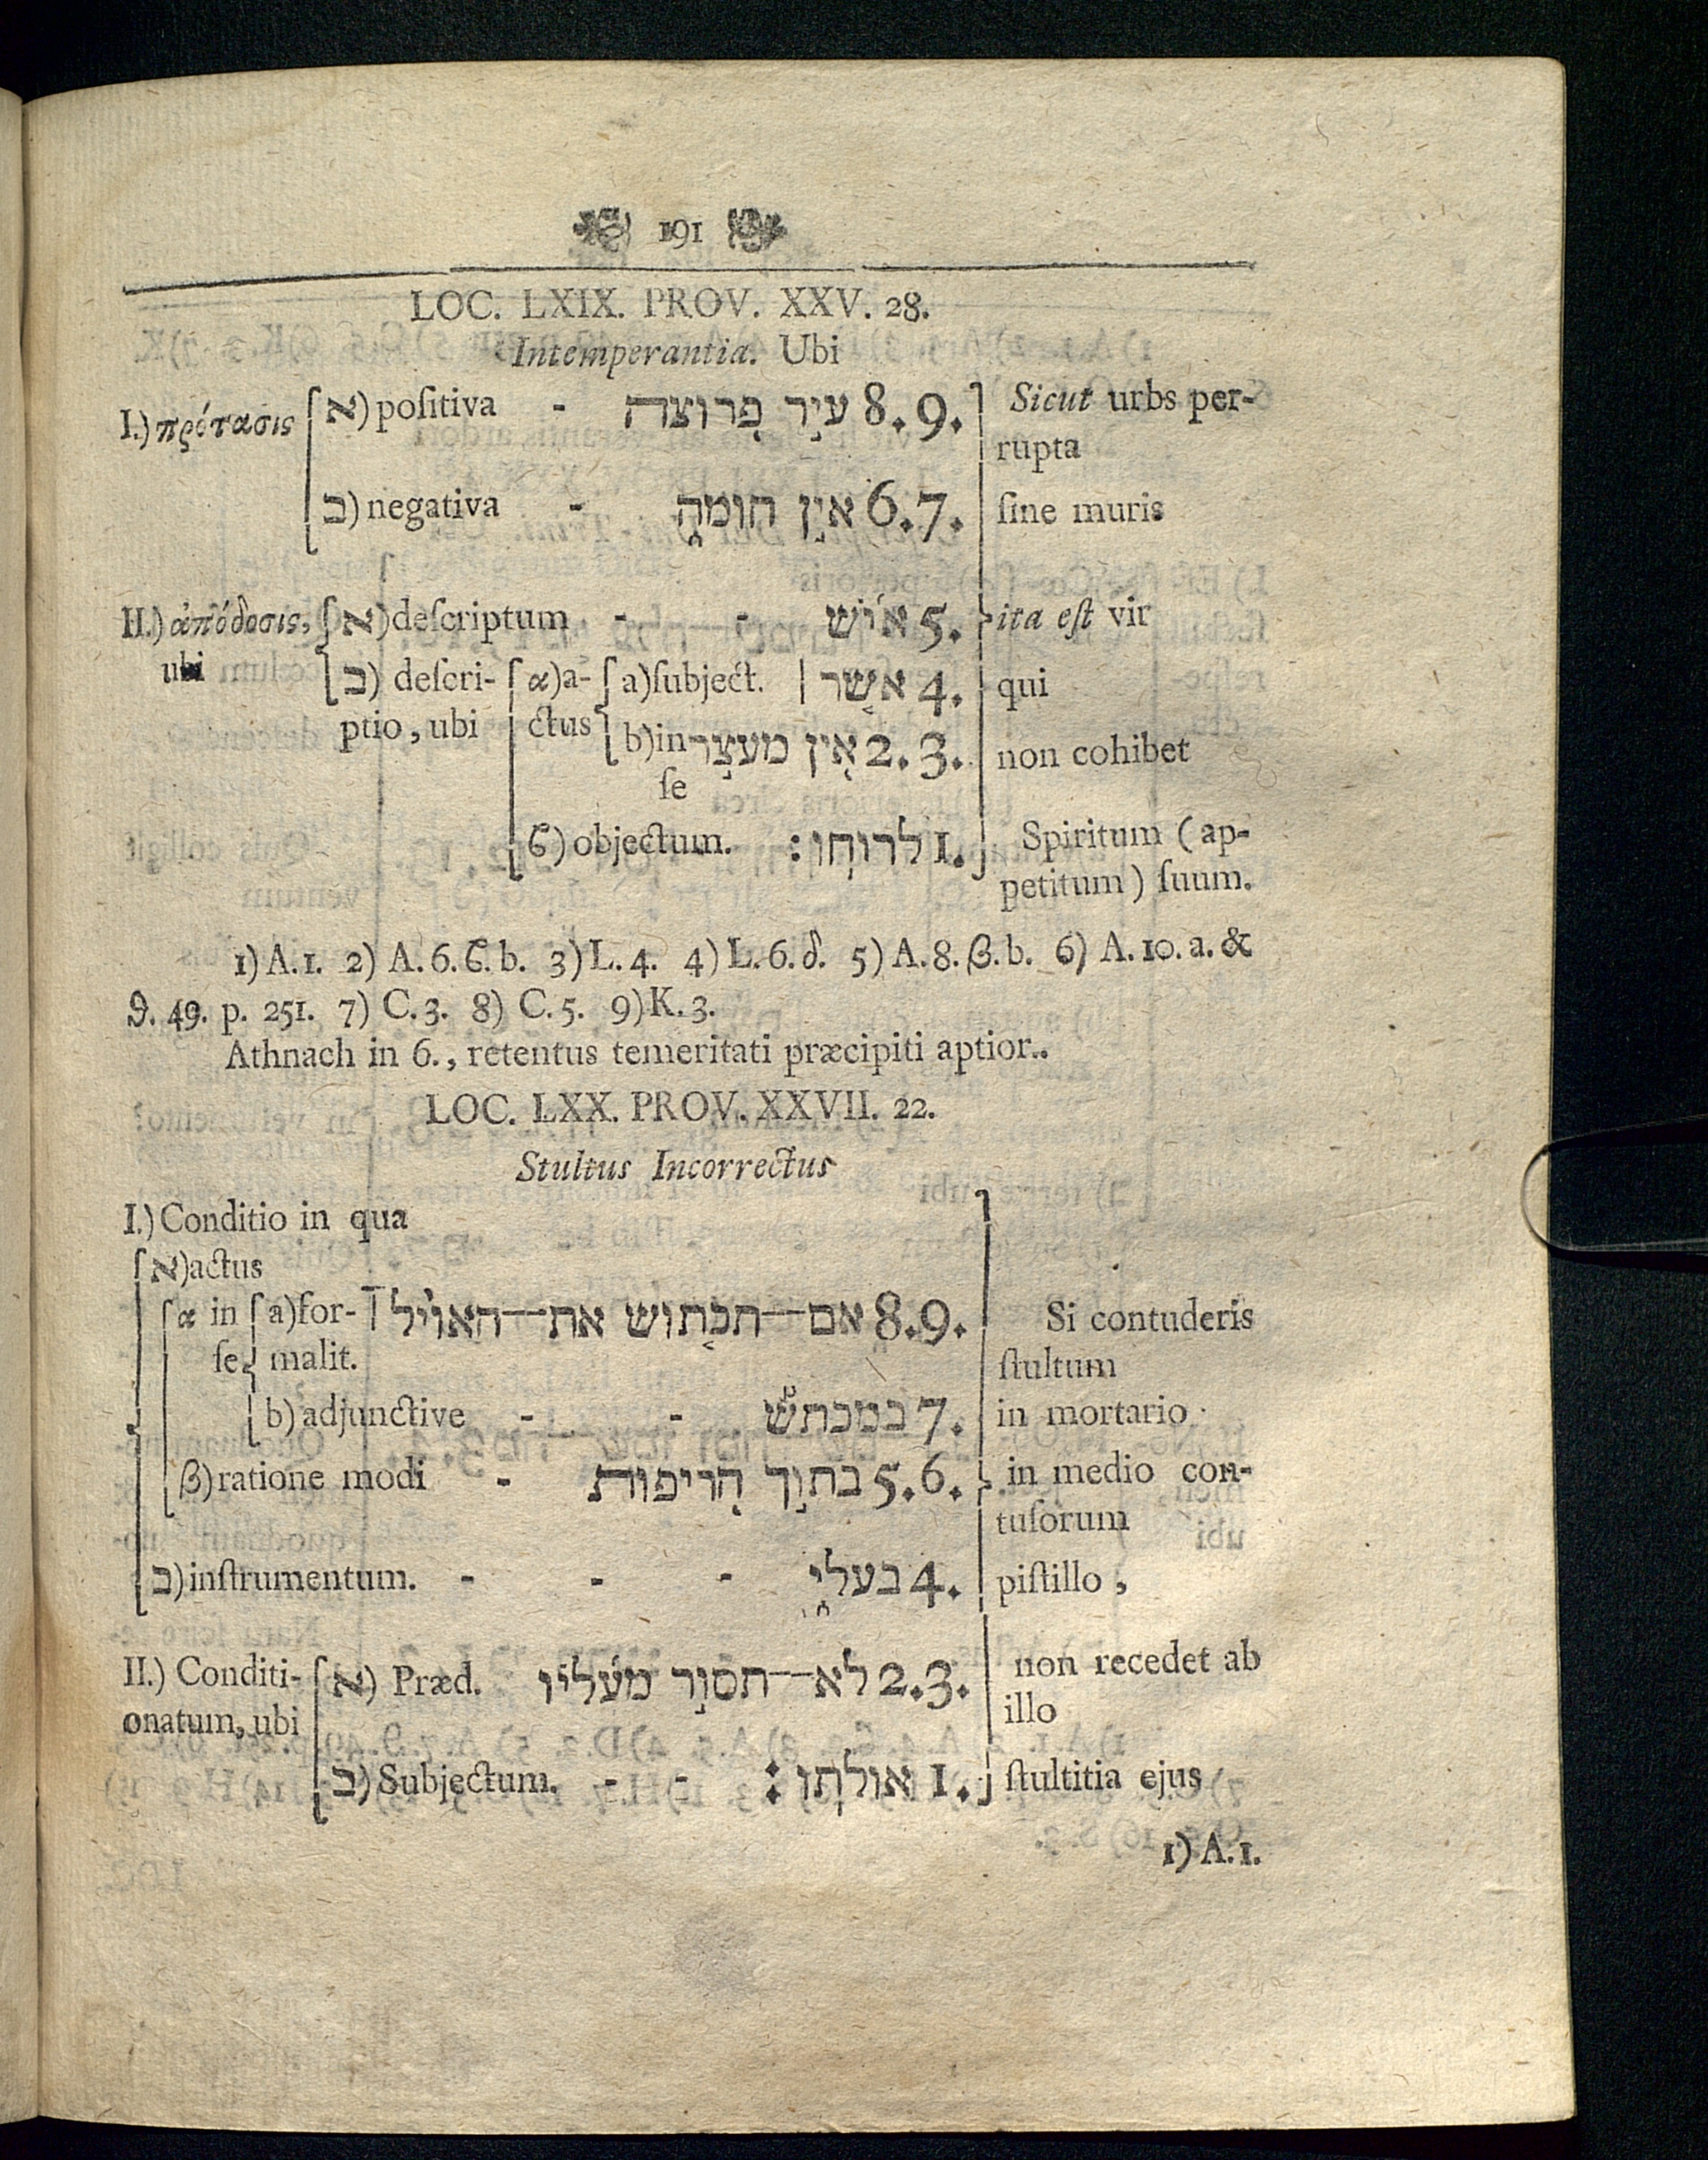 191
LOC. LXIX. PROV. XXV. 28.
Intemperantia. Ubi
I.) πρότασις א) poſitiva - עיר פרוצה 8.9. Sicut urbs per-
rupta
ב) negativa - אין חומה 6.7. ſine muris
II.) ἀπόδοσις, א) deſcriptum - - איש 5. ita eſt vir
ubi ב) deſcri- α) a- a) ſubject. אשר 4. qui
ptio, ubi ctus b) in אין מעצר 2.3. non cohibet
ſe
ϐ) objectum. לרוחו: 1. Spiritum (ap-
petitum) ſuum.
1) A. 1. 2) A. 6. ϐ. b. 3) L. 4. 4) L. 6. δ. 5) A. 8. β. b. 6) A. 10. a. &
ϑ. 49. p. 251. 7) C. 3. 8) C. 5. 9) K. 3.
Athnach in 6., retentus temeritati præcipiti aptior..
LOC. LXX. PROV. XXVII. 22.
Stultus Incorrectus
I.) Conditio in qua
א) actus
α in a) for- אם—תכתוש את—האויל 8.9. Si contuderis
ſe malit. ſtultum
b) adjunctive - - במכתש 7. in mortario
β) ratione modi - בתוך הריפות 5.6. in medio con-
tuſorum
ב) inſtrumentum. - - - בעלי 4. piſtillo,
II.) Conditi- א) Præd. לא—תסור מעליו 2.3. non recedet ab
onatum, ubi illo
ב) Subjectum. - - אולתו: 1. ſtultitia ejus
1) A. 1.